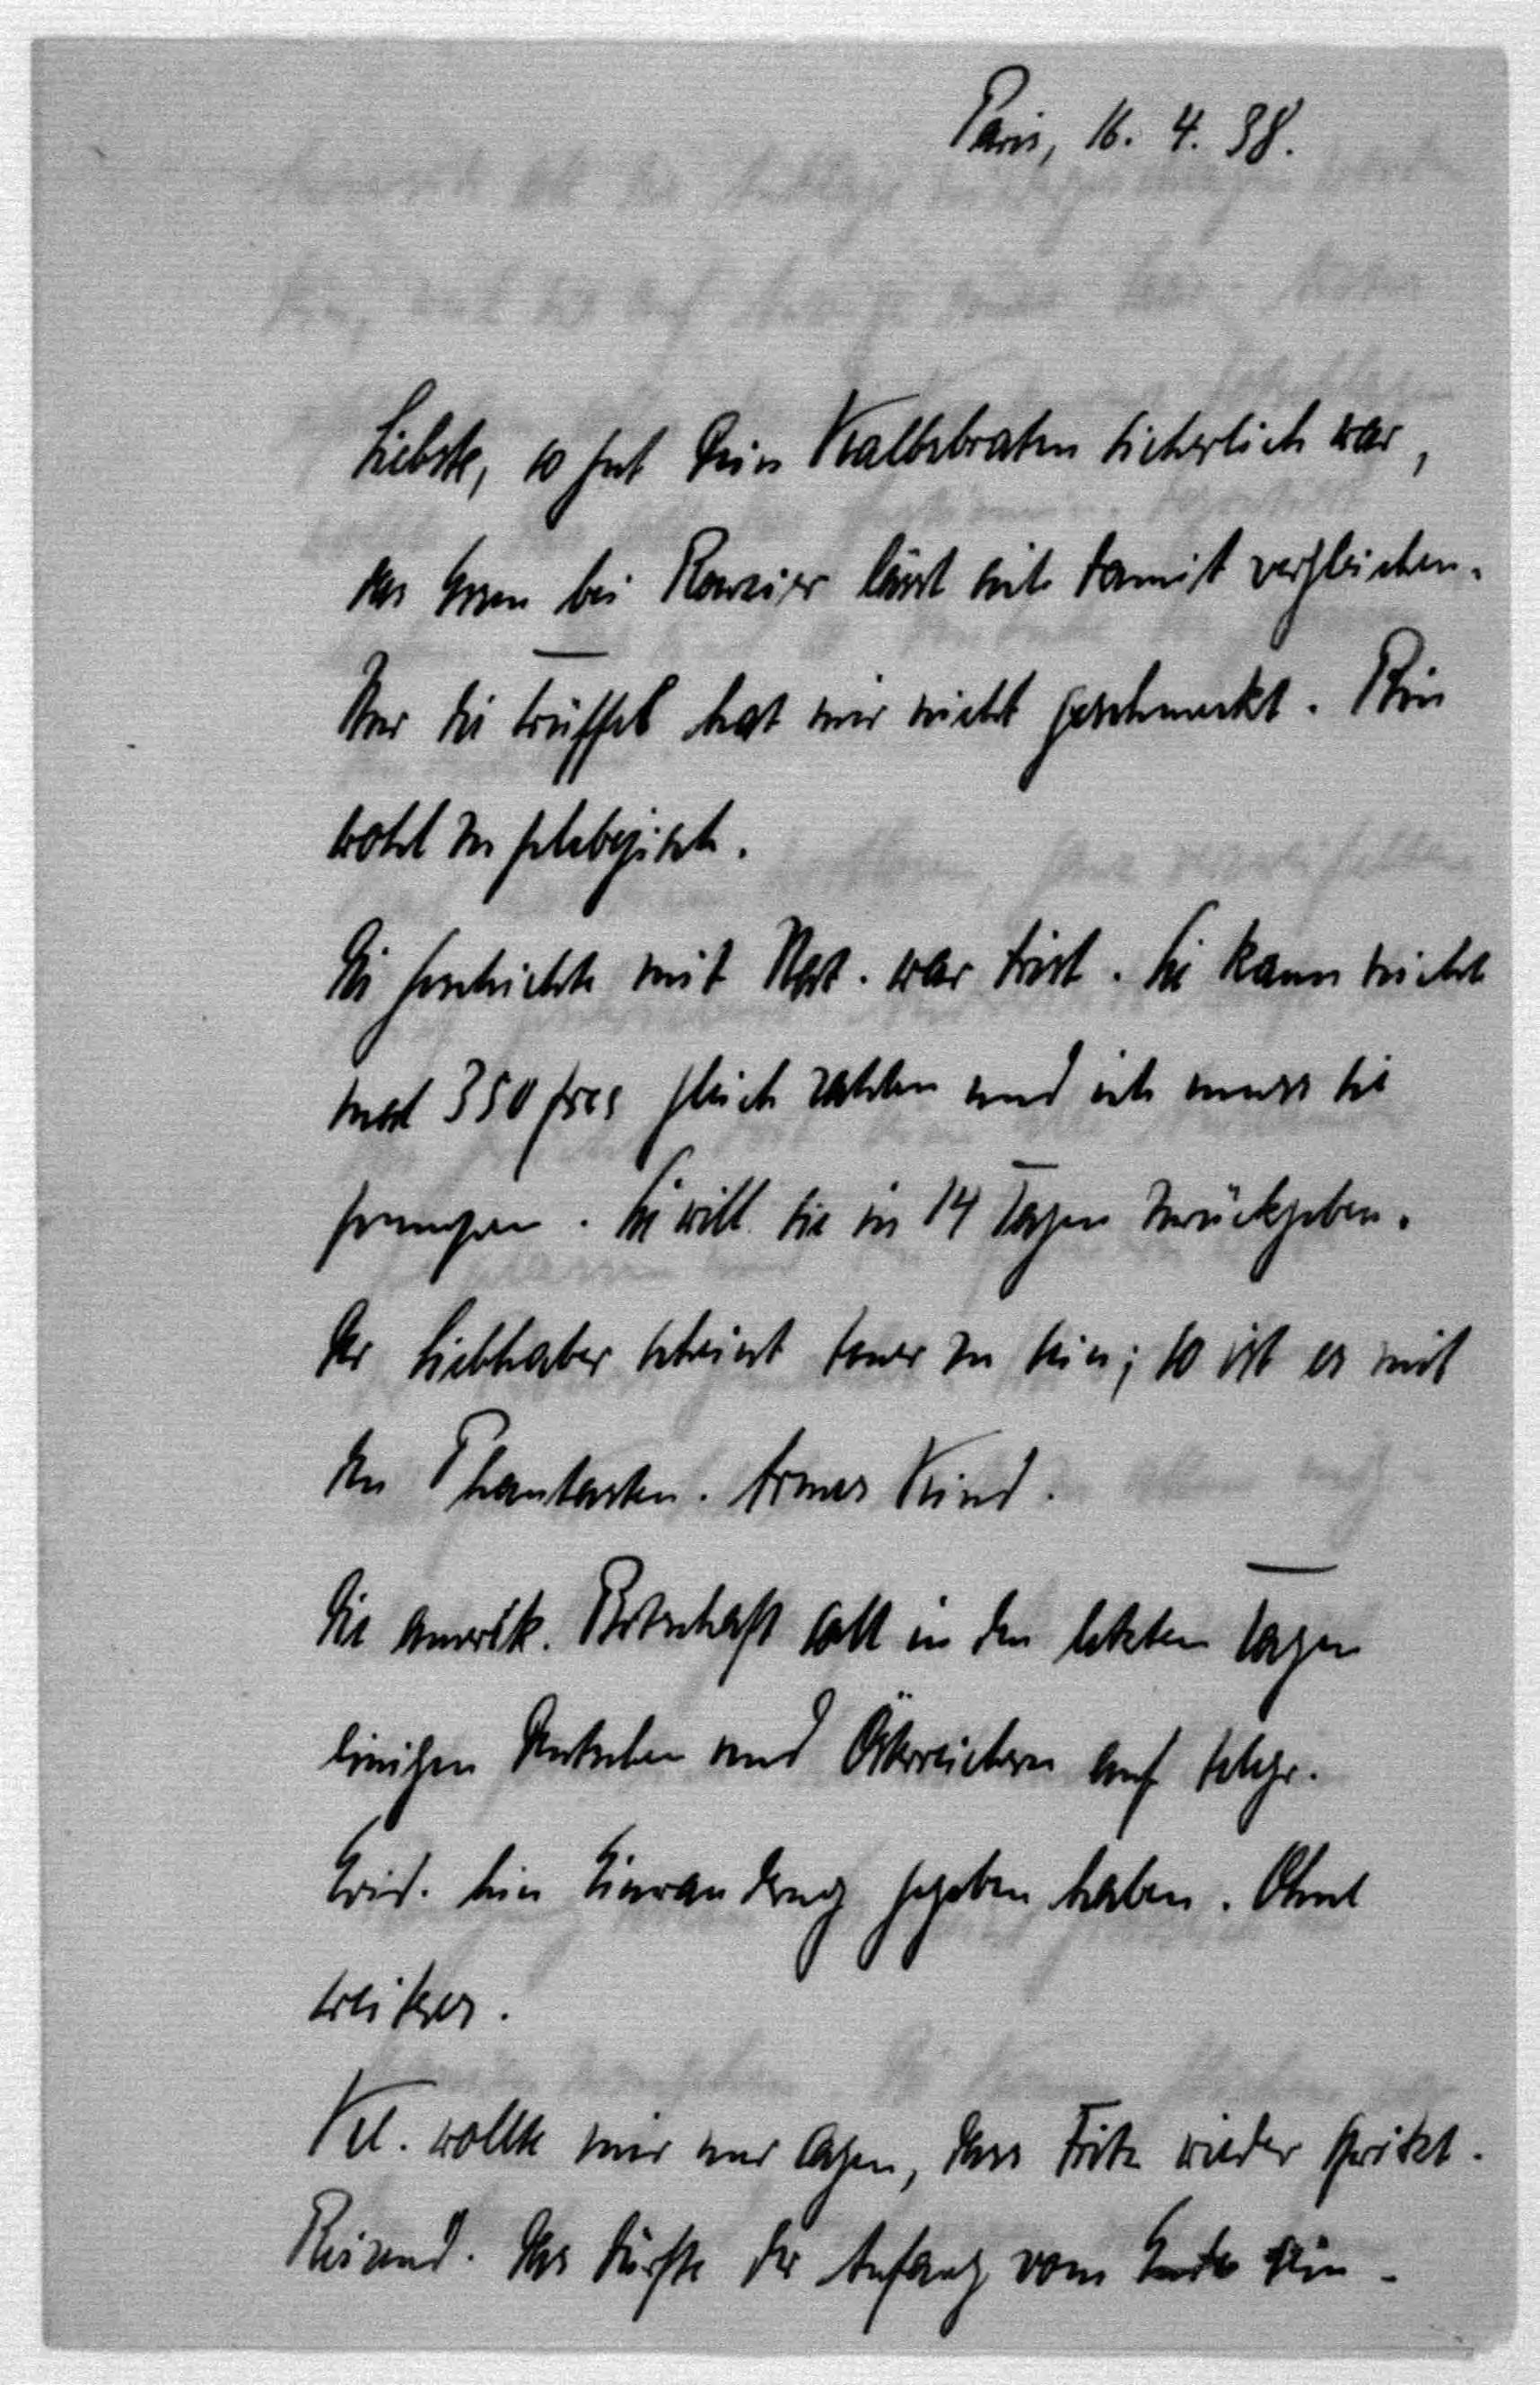 Paris, 16. 4. 38.
Liebste, so gut Dein Kalbsbraten sicherlich war,
das Essen bei lässt sich damit vergleichen.
Nur die Trüffel hat mir nicht geschmeckt. Bin
wohl zu plebejisch.
Die Geschichte mit war trist. Sie kann nicht
mal 350 frcs gleich zahlen und ich muss sie
. Sie will sie in 14 Tagen zurückgeben.
Der Liebhaber scheint teuer zu sein; so ist es mit
den Phantasten. Armes Kind.
Die amerik. Botschaft soll in den letzten Tagen
einigen Deutschen und Österreichern auf telegr.
die Einwanderg gegeben haben. Ohne
weiteres.
wollte mir nur sagen, dass Fritz wieder spricht.
Reizend. Das dürfte der Anfang vom Ende sein.